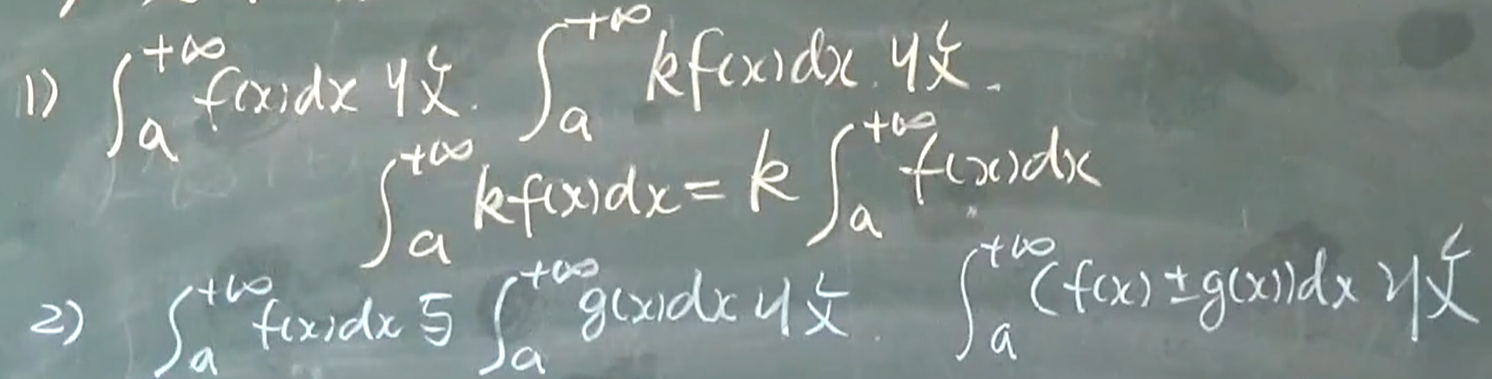 1) ∫_a^{+∞} f(x)dx 收. ∫_a^{+∞} kf(x)dx. 收.
∫_a^{+∞} kf(x)dx = k ∫_a^{+∞} f(x)dx
2) ∫_a^{+∞} f(x)dx 与 ∫_a^{+∞} g(x)dx 收. ∫_a^{+∞} (f(x) ± g(x))dx 收